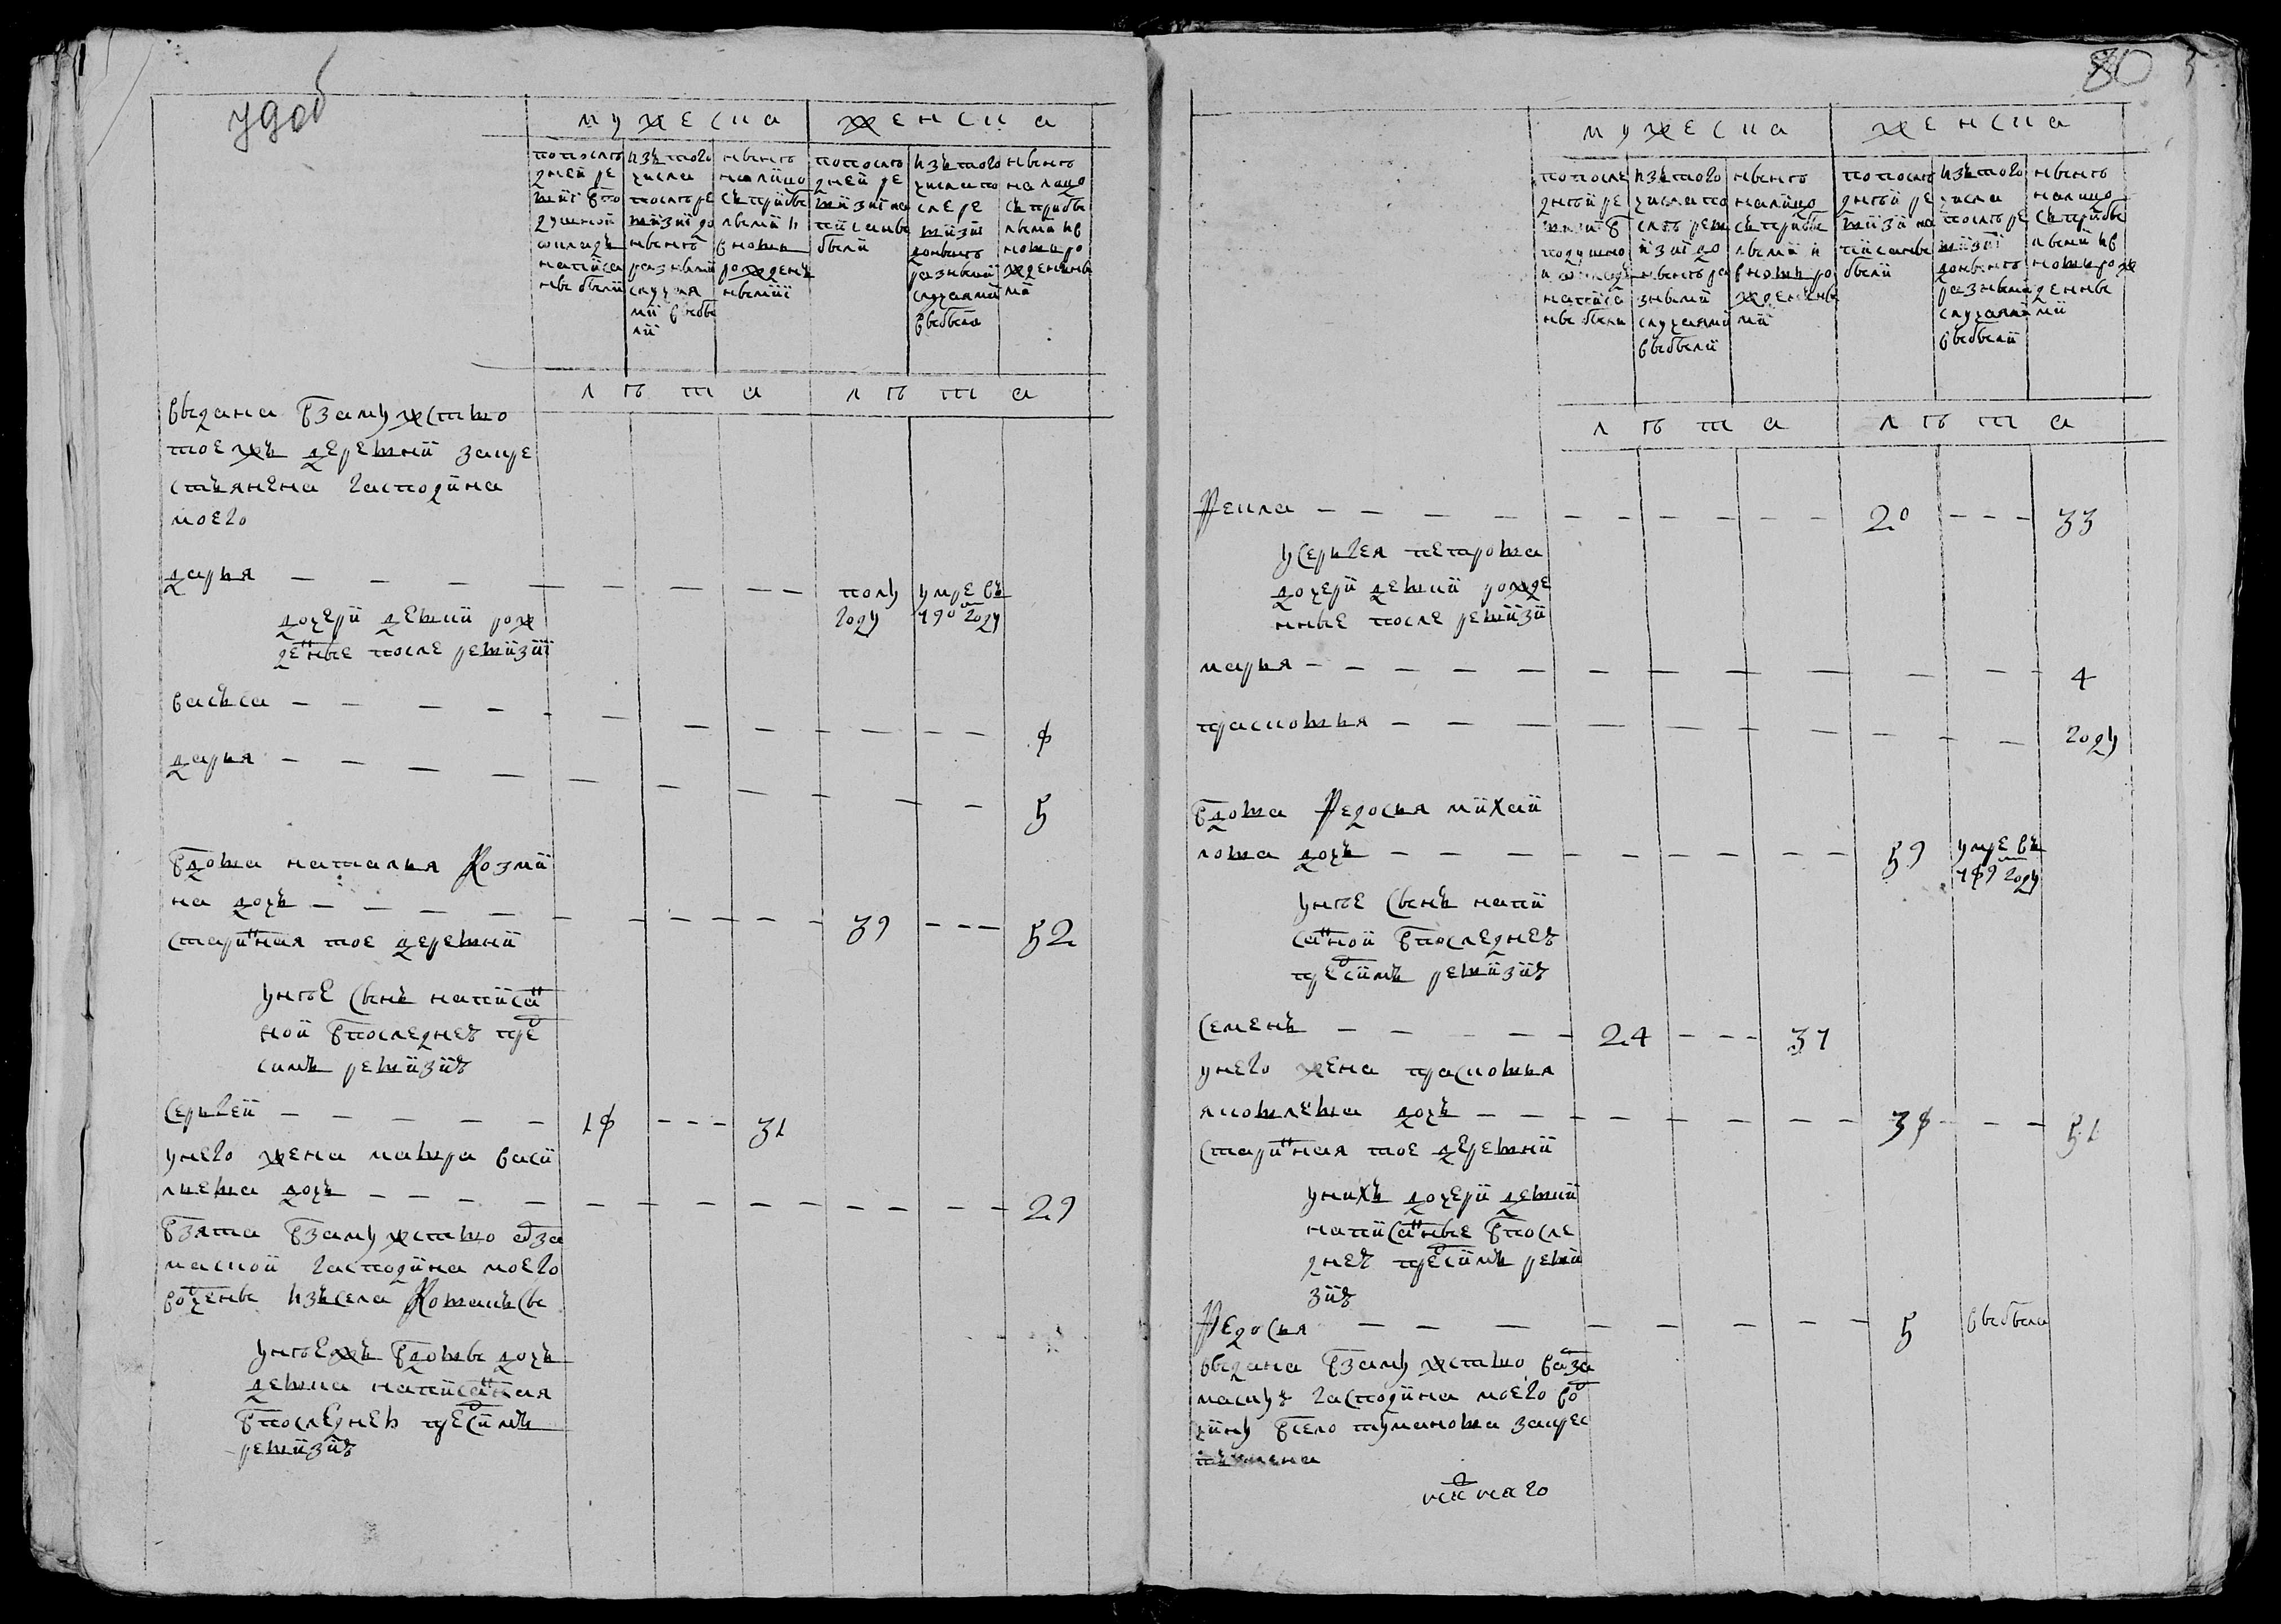 удоб
мужеска женска
попослѣ
дней ре
визіи впо
душной
окладъ
написа
ные были
изътого
числа
послѣре
визіи до
нынѣ
разными
случая
ми выбы
ли
нынѣ
налицо
съприбы
лыми и
вновь
рожденъ
ными
попослѣ
дней ре
визіи на
писаны
были
изътого
числапо
слере
визіи
донынѣ
разными
случаями
выбыло
нынѣ
налицо
съприбы
лыми ив
новь ро
жденны
ми
лѣта лѣта
выдана взамужство
тоежъ деревни закре
стьянена гасподина
моего
дарья полу году умре въ 790м году
дочери девки рож
денные после ревизіи
васъса 8
дарья 5
вдова наталья козми
на дочь 39 52
старинная тое деревни
унѣе сынъ написан
ной впоследнею пред
симъ ревизию
сергей 18 31
унего жена мавра васи
льева дочь 29
взята взамужство арза
маской гасподина моего
вотчены изъсела
унѣежъ вдовы дочь
девка написанная
впоследнею предсимъ
ревизию
80
мужеска женска
попосле
дней ре
визіи в
подушно
й окладъ
написа
ные были
изътого
числапо
слѣ рев
изіи до
нынѣра
зными
случаями
выбыли
нынѣ
налицо
съприбы
лыми и
вновь ро
жденны
ми
попослѣ
дней ре
визіи на
писаные
были
изътого
числа
послѣре
визіи
донынѣ
разными
случаями
выбыли
нынѣ
налицо
съприбы
лыми ив
новь рож
денны
ми
лѣта лѣта
фекла 20 33
усергея петрова
дочери девки рожде
нные после ревизіи
марья 4
прасковья году
вдова федосья михаи
лова дочь 59 умре въ 789 году
унѣе сынъ напи
санной впоследнею
предсимъ ревизию
семенъ 24 37
унего жена прасковья
яковлева дочь 38 51
старинная тое деревни
унихъ дочери девки
написанные впосле
днею предсимъ реви
зию
федосья 5 выбыла
выдана взамужство варза
маскую гасподина моего во
чину всело туманова закрес
тьянена